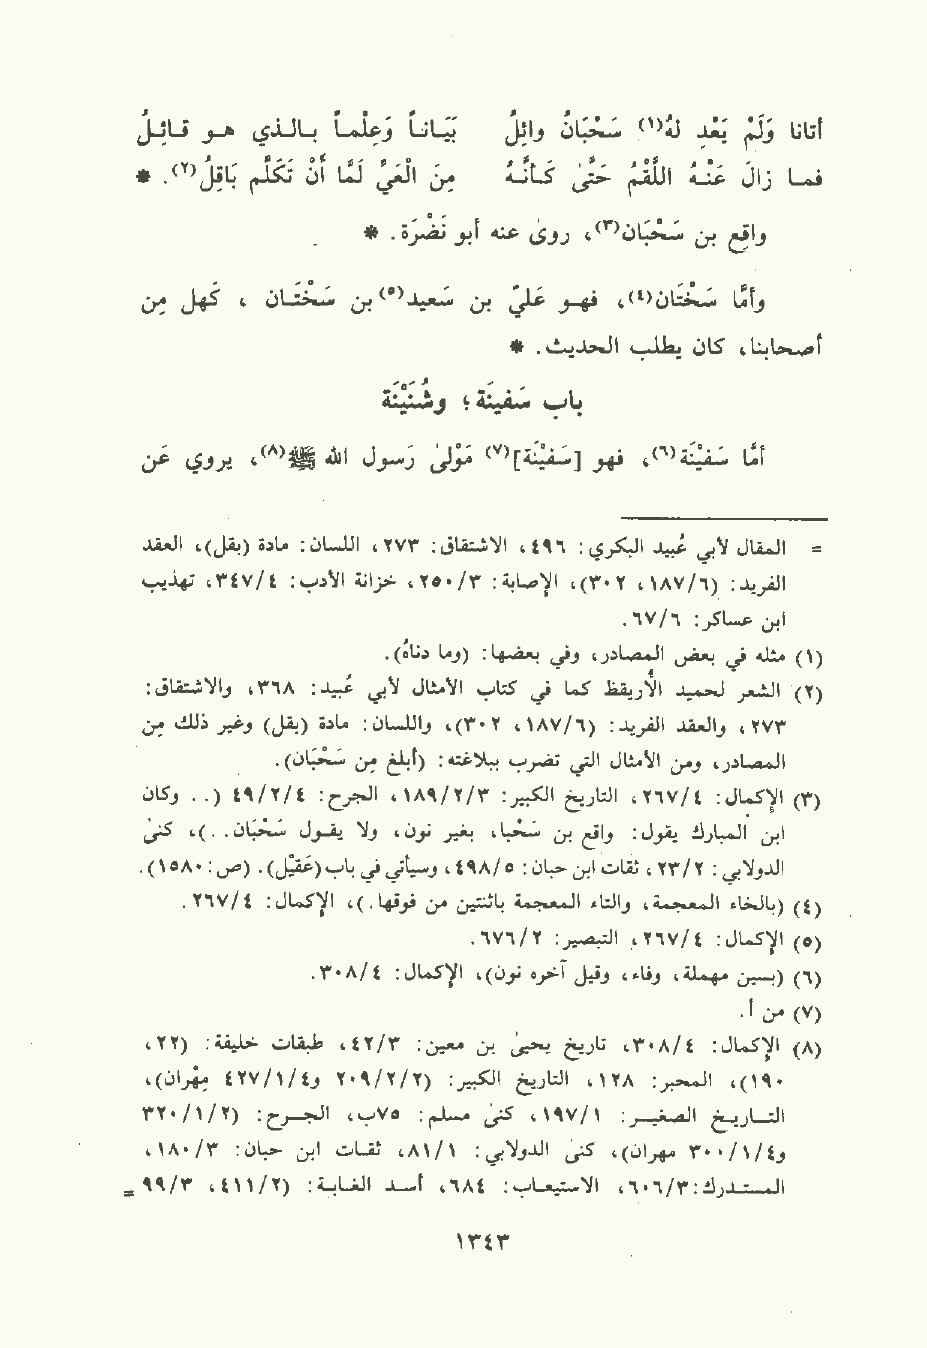 أتانا وَلَمْ يَعْدِ لهُ(١) سَحْبَانُ وائِلُ بَيَـانـاً وَعِلْمـاً بالـذي هـو قـائِـلُ
فمـا زالَ عـنـهُ اللُّقَمُ حَتَّى كَـأنَّـهُ مِن الْعَيِّ لَمَّا أنْ تَكَلَّم بَاقِلُ(٢). *
واقِع بن سَحْبَان(٣)، روىٰ عنه أبو نَضْرَة. *
وأمَّا سَخْتَان(٤)، فهو عَليّ بن سَعيد(٥) بن سَخْتَـان ، كَهل مِن
أصحابنا، كان يطلب الحديث. *
باب سَفينَة؛ وشُنَيْنَة
أمَّا سَفيْنَة(٦)، فهو [سَفيْنَة](٧) مَوْلىٰ رَسول الله ﷺ(٨)، يروي عَن
= المقال لأبي عُبيد البكري: ٤٩٦، الاشتقاق: ٢٧٣، اللسان: مادة (بقل)، العقد
الفريد: (٦/١٨٧، ٣٠٢)، الإصابة: ٣/٢٥٠، خزانة الأدب: ٤/٣٤٧، تهذيب
ابن عساكر: ٦/٦٧.
(١) مثله في بعض المصادر، وفي بعضها: (وما دناهُ).
(٢) الشعر لحميد الأريقط كما في كتاب الأمثال لأبي عُبيد: ٣٦٨، والاشتقاق:
٢٧٣، والعقد الفريد: (٦/١٨٧، ٣٠٢)، واللسان: مادة (بقل) وغير ذلك مِن
المصادر، ومن الأمثال التي تضرب ببلاغته: (أبلغ مِن سَحْبَان).
(٣) الإكمال: ٤/٢٦٧، التاريخ الكبير: ٣/٢/١٨٩، الجرح: ٤/٢/٤٩ (.. وكان
ابن المبارك يقول: واقع بن سَحْبا، بغير نون، ولا يقـول سَحْبَان. .)، كنىٰ
الدولابي: ٢/٢٣، ثقات ابن حبان: ٥/٤٩٨، وسيأتي في باب (عَقيْل). (ص: ١٥٨٠).
(٤) (بالخاء المعجمة، والتاء المعجمة باثنتين من فوقها.)، الإكمال: ٤/٢٦٧.
(٥) الإكمال: ٤/٢٦٧، التبصير: ٢/٦٧٦.
(٦) (بسين مهملة، وفاء، وقيل آخره نون)، الإكمال: ٤/٣٠٨.
(٧) من أ.
(٨) الإكمال: ٤/٣٠٨، تاريخ يحيىٰ بن معين: ٣/٤٢، طبقات خليفة: (٢٢،
١٩٠)، المحبر: ١٢٨، التاريخ الكبير: (٢/٢/٢٠٩ و٤/١/٤٢٧ مِهْران)،
التـاريـخ الصغيـر: ١/١٩٧، كنىٰ مسلم: ٧٥ب، الجـرح: (٢/١/٣٢٠
و٤/١/٣٠٠ مهران)، كنىٰ الدولابي: ١/٨١، ثقـات ابن حبان: ٣/١٨٠،
المستدرك: ٣/٦٠٦، الاستيعاب: ٦٨٤، أسـد الغـابـة: (٢/٤١١)، ٣/٩٩ =
١٣٤٣